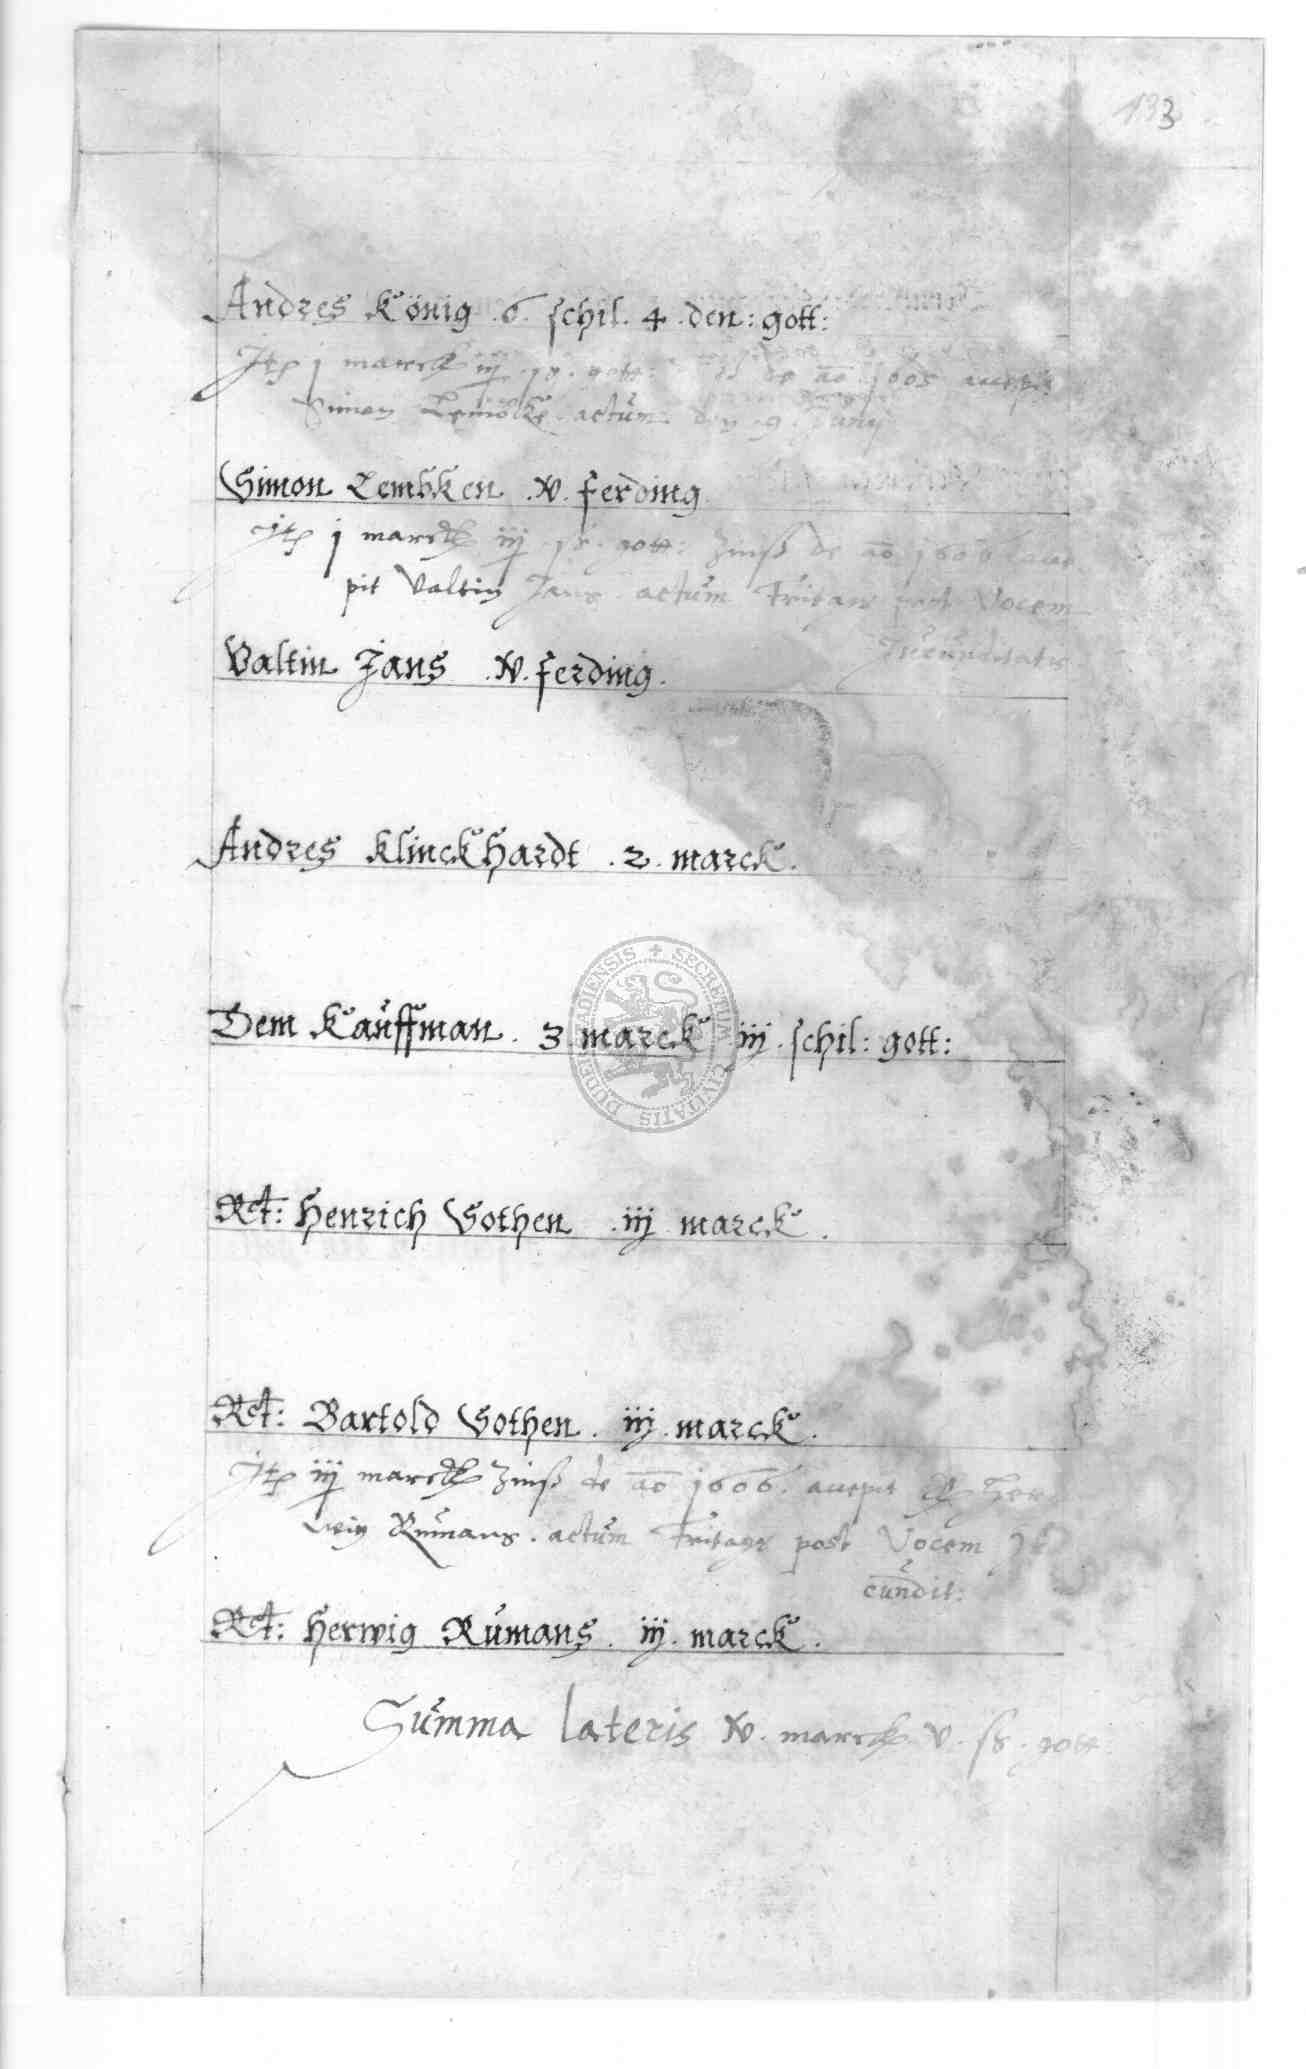 133
Andres König .6. schil. 4 .den: gott:
Jtem j marck iij ß. gott: de ao 1605 accepit
Simon Lembke. actum den 9. Junij
Simon Lembken .v. ferding
Jtem j marck iij ß. gott: Zinß de ao 1606 acce
pit Valtin Jans actum Fritags post Vocem
Jucunditatis
Valtin Jans .v. ferding.
Andres Klinckhardt .2. marck.
Dem Kauffman. 3 marck iij .schil: gott:
SECRETUM CIVITATIS DUDERSTADIENSIS
Rt: Henrich Gothen .iij marck.
Rt: Bartold Gothen. iij. marck.
Jtem iij marck Zinß de ao 1606. accepit Her
wig Rumans. actum Fritags post Vocem Ju
cundit:
Rt: Herwig Rumans. iij. marck.
Summa lateris xv. marck. v. ß. gott